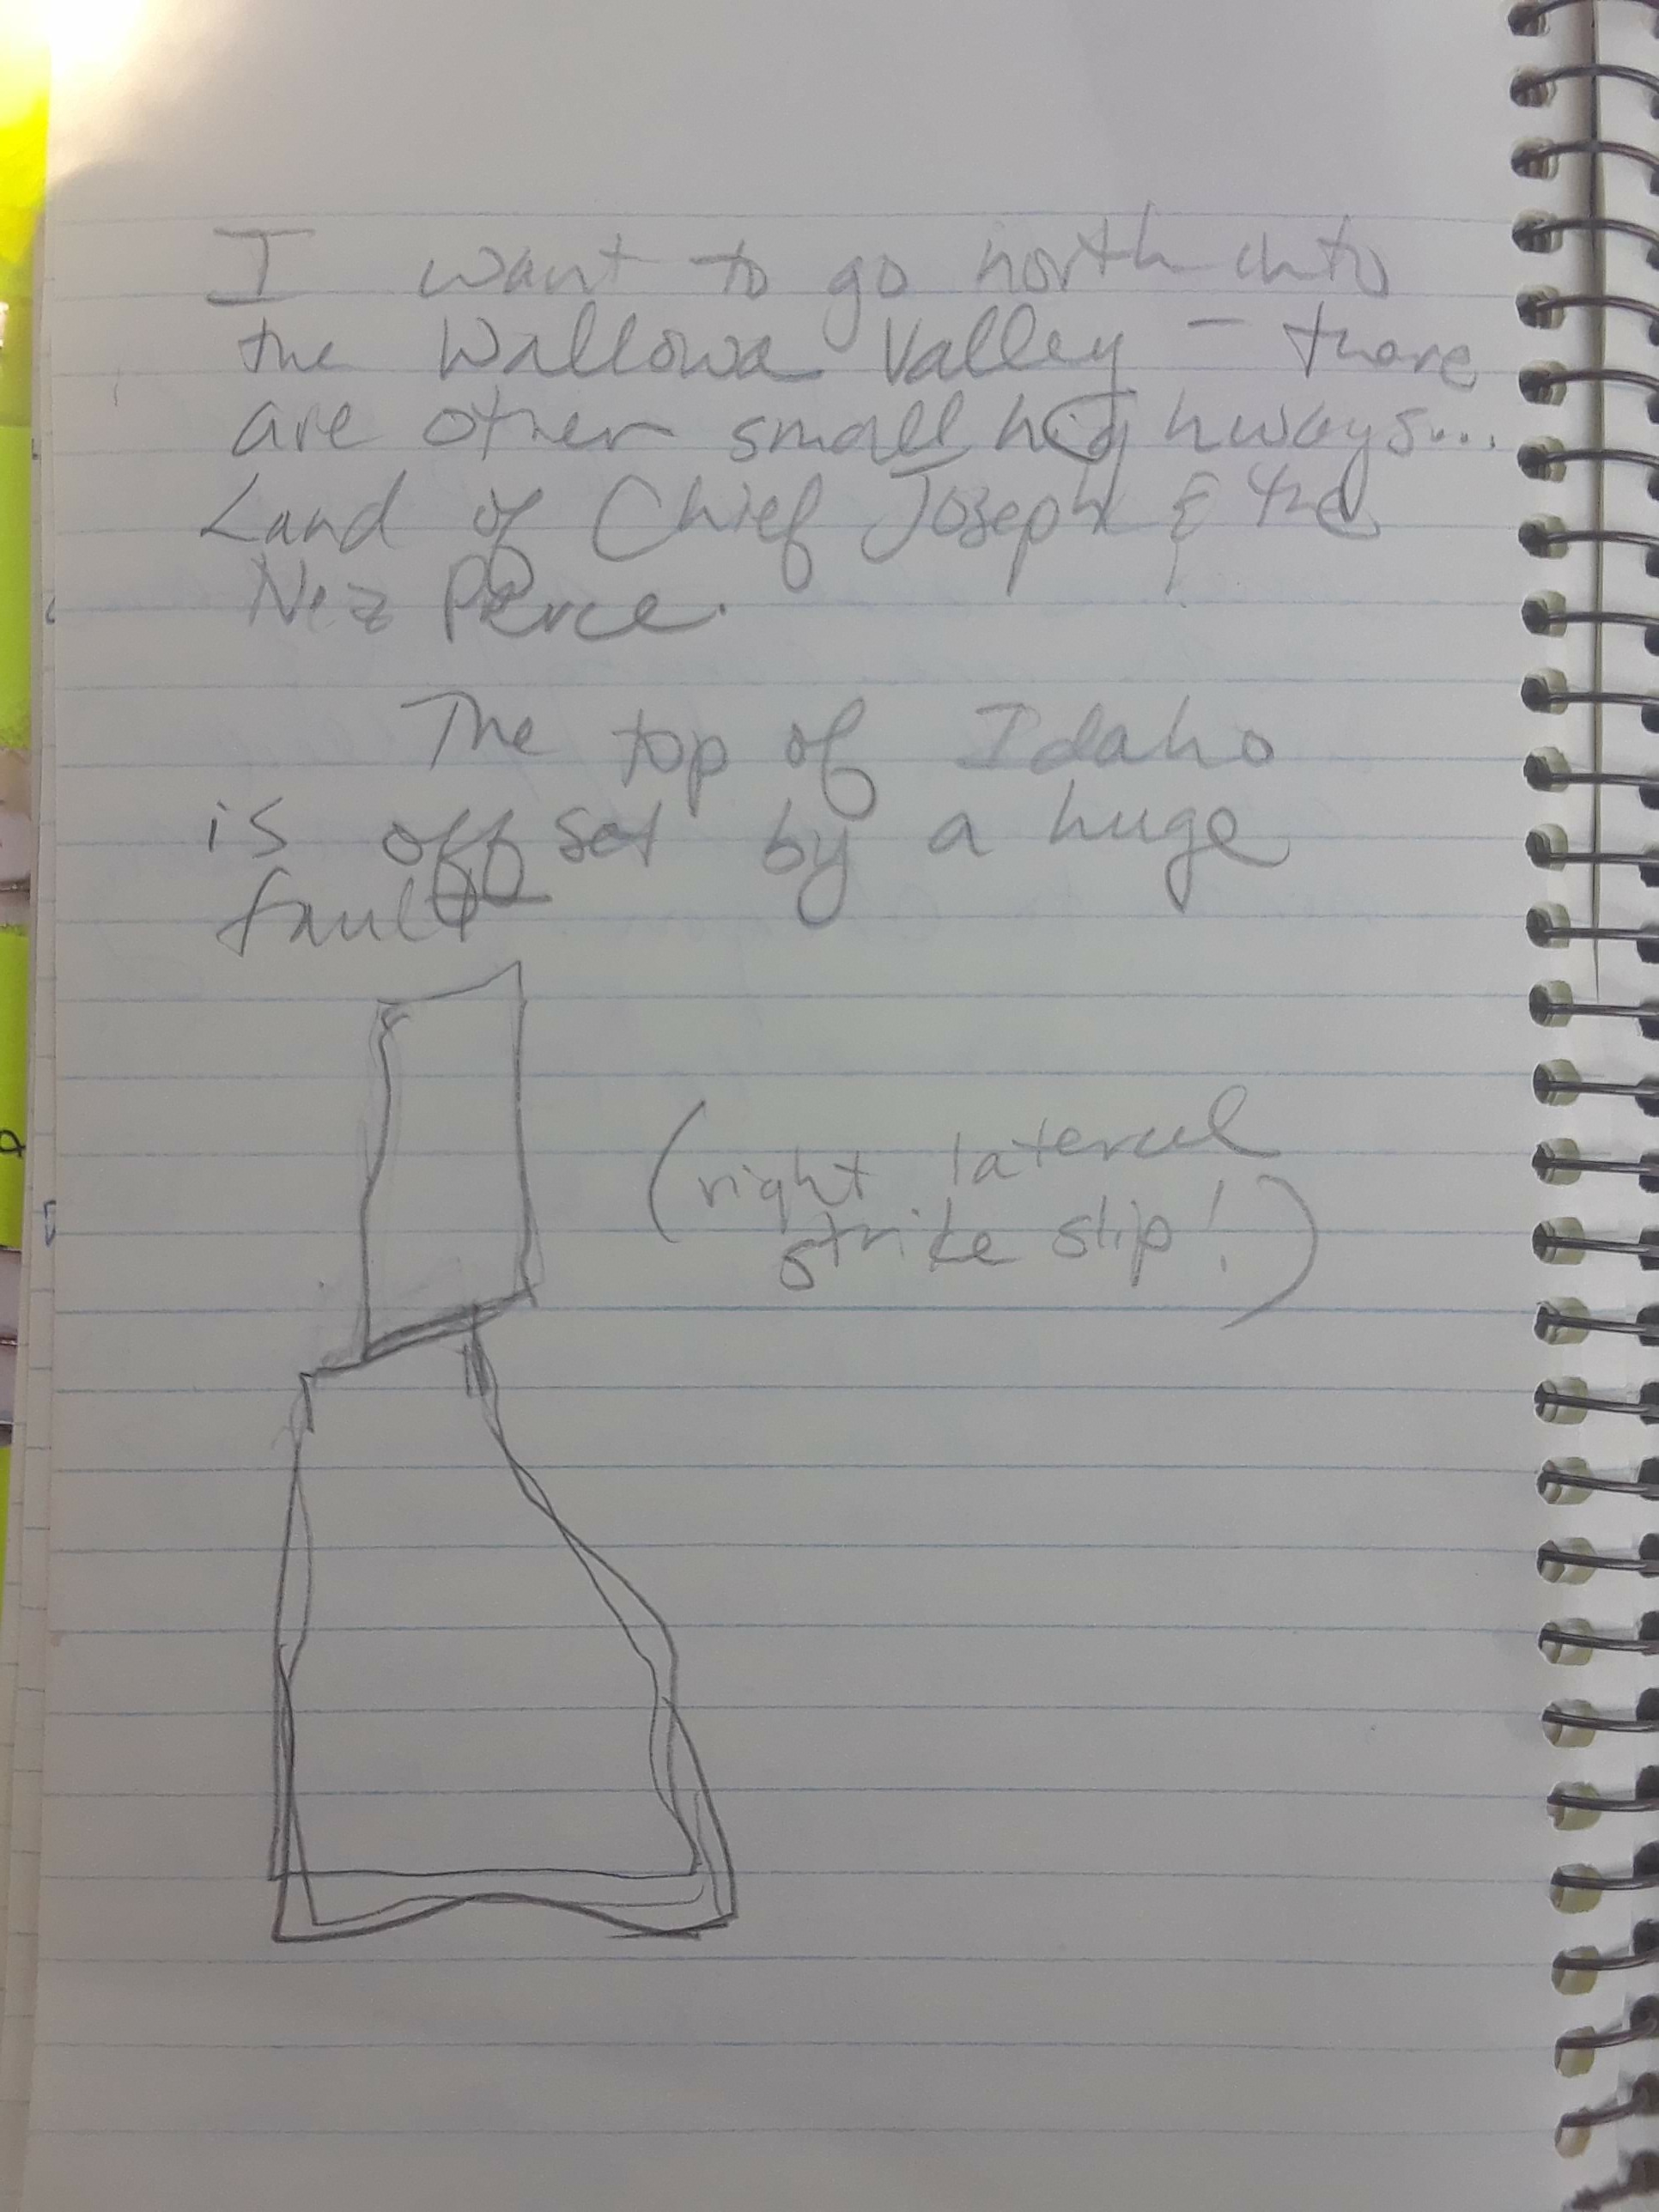 I want to go north into
the Wallowa Valley – there
are other small highways...
Land of Chief Joseph & the
Nez Perce.
The top of Idaho
is offset by a huge
fault
(right lateral
strike slip!)